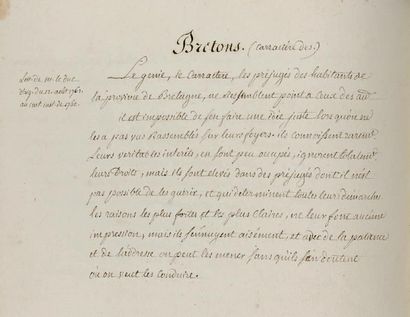 Bretons. (Carractère des.)
Lett. de M. le duc
d'aig. du 12. août 1762.
Le genie, le Carractère, les préjugés des habitants de
la province de Bretagne, ne ressemblent point a ceux des aut.
il est impossible de s'en faire une idée juste lors qu'on ne
les a pas vus Rassemblés sur leurs foyers. ils connoissent rarement
Leurs veritables interets, en sont peu occupés, ignorent totalemt.
leurs Droits, mais ils sont elevés dans des préjugés dont il n'est
pas possible de les guerir, et qui determinent toutes leurs demarches
les raisons les plus fortes et les plus claires, ne leur font aucune
impression, mais ils s'ennuyent aisément, et avec de la patience
et de l'addresse on peut les mener sans qu'ils s'en doutent
où on veut les conduire.